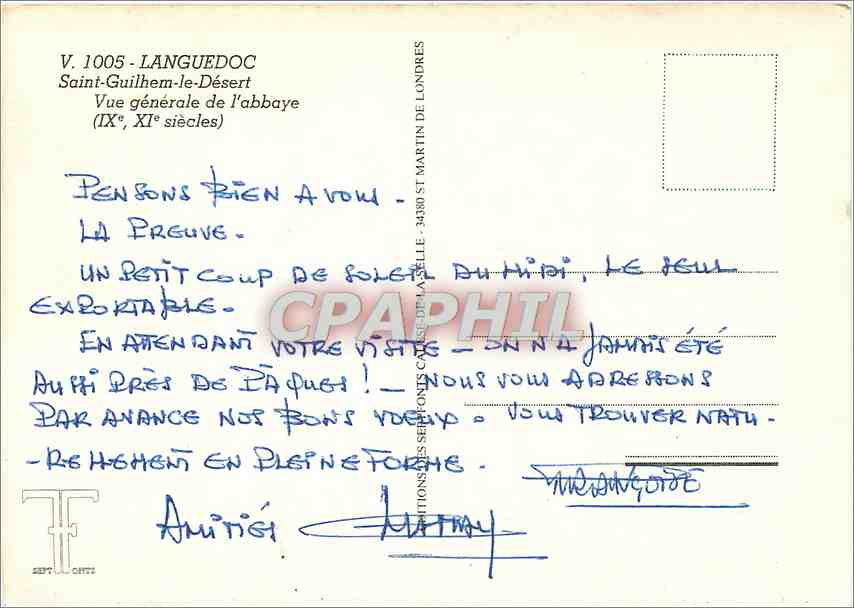 V. 1005 - LANGUEDOC
Saint-Guilhem-le-Désert
Vue générale de l'abbaye
(IXe, XIe siècles)
PENSONS BIEN A VOUS -
LA PREUVE -
UN PETIT COUP DE SOLEIL DU MIDI, LE SEUL
EXPORTABLE -
EN ATTENDANT VOTRE VISITE - ON N A JAMAIS ÉTÉ
AUSSI PRÈS DE PÂQUES ! - NOUS VOUS ADRESSONS
PAR AVANCE NOS BONS VOEUX. VOUS TROUVER NATU-
-RELLEMENT EN PLEINE FORME -
FRANÇOISE
AMITIÉS
ÉDITIONS DES SEPT FONTS CAUSSE-DE-LA-SELLE - 34380 ST MARTIN DE LONDRES
CPAPHIL
SEPT FONTS